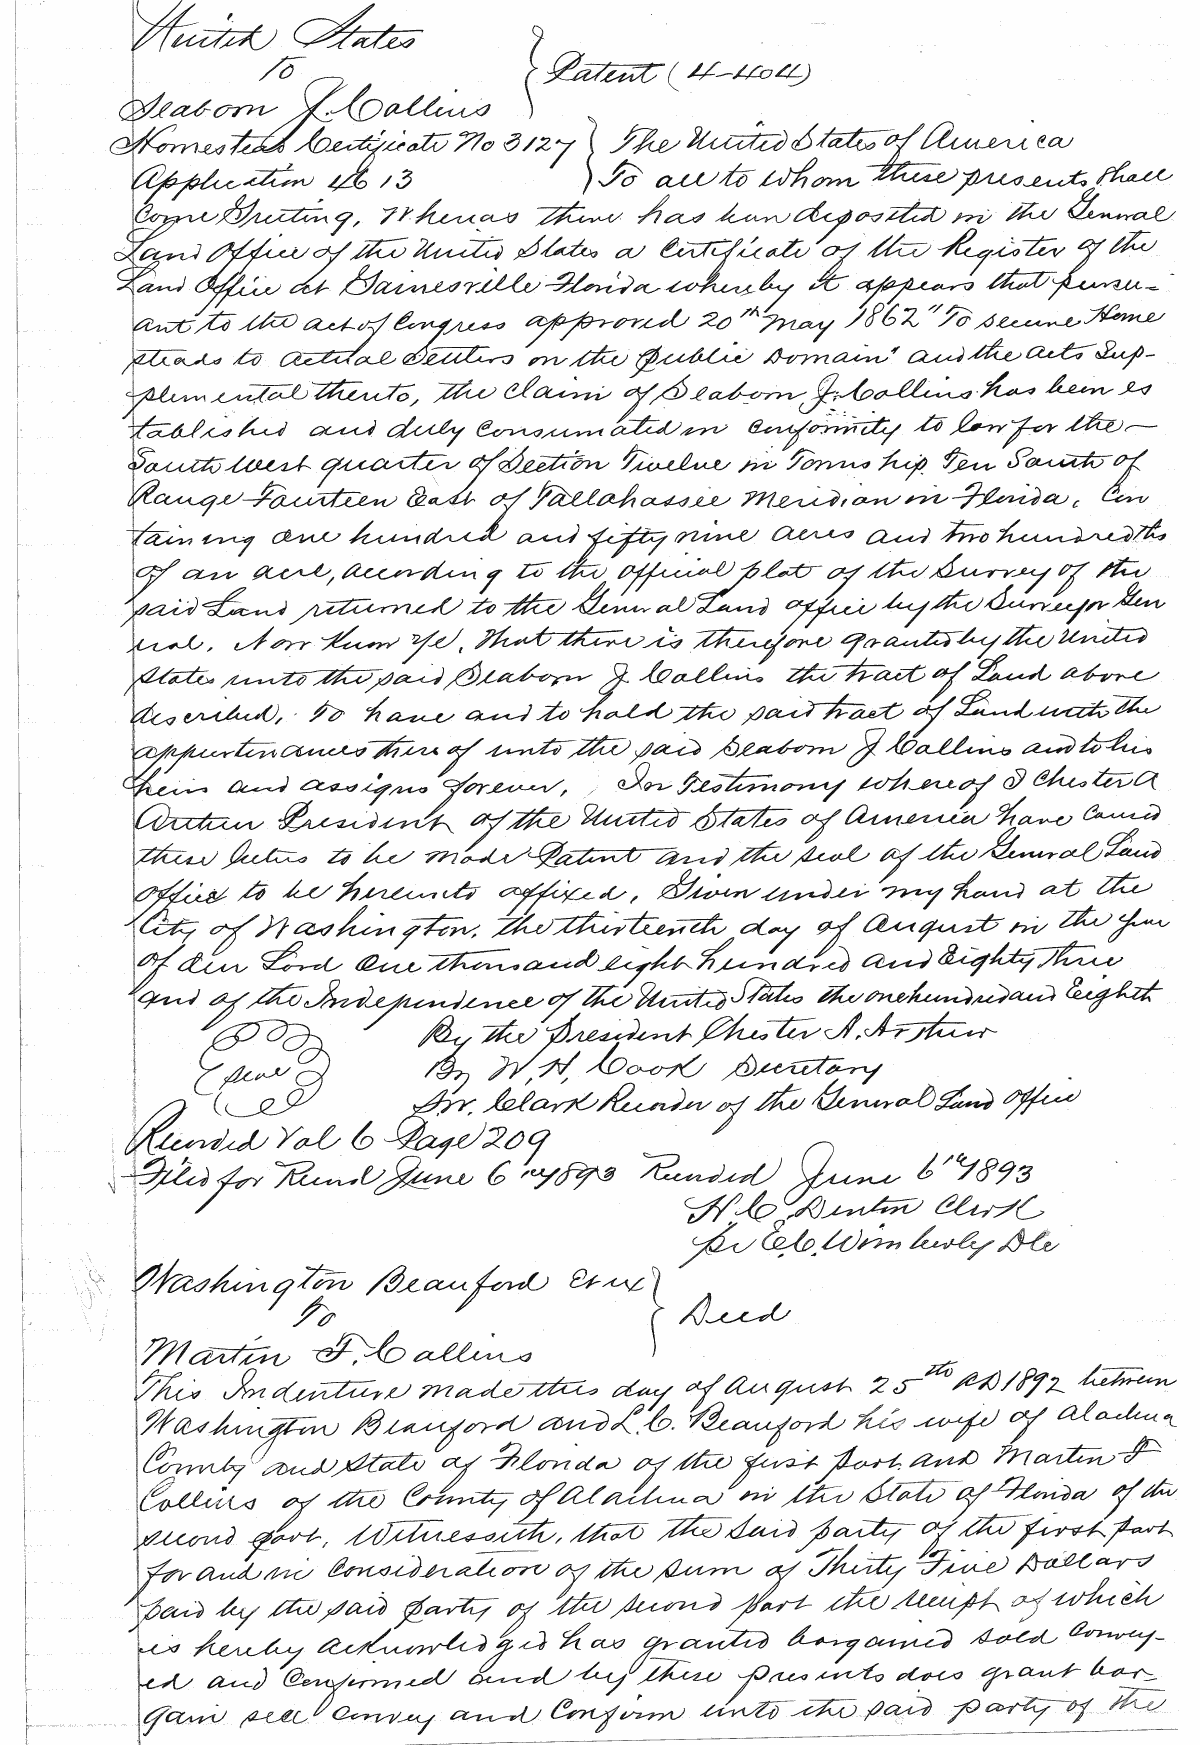 United States
To
Patent (4-404)
Seaborn J. Collins
Homestead Certificate No 3127 The United States of America
Application 4613 To all to whom these presents shall
Come Greeting, Whereas there has been deposited in the General
Land Office of the United States a Certificate of the Register of the
Land Office at Gainesville Florida whereby it appears that pursu-
ant to the act of Congress approved 20th May 1862 "To secure Home
steads to actual settlers on the public Domain" and the acts Sup-
plemental thereto, the claim of Seaborn J. Collins has been es
tablished and duly Consumated in Conformity to law for the -
South west quarter of Section Twelve in Township Ten South of
Range Fourteen East of Tallahassee Meridian in Florida, Con
taining One hundred and fifty nine acres and two hundredths
of an acre, according to the official plat of the Survey of the
said Land returned to the General Land office by the Surveyor Gen
eral. Now Know Ye, that there is therefore granted by the United
States unto the said Seaborn J. Collins the tract of Land above
described, To have and to hold the said tract of Land with the
appurtenances thereof unto the said Seaborn J Collins and to his
heirs and assigns forever, In Testimony whereof I Chester A
Arthur President of the United States of America have caused
these letters to be made Patent and the seal of the General Land
Office to be hereunto affixed, Given under my hand at the
City of Washington, the thirteenth day of August in the year
of Our Lord One thousand eight hundred and Eighty three
and of the Independence of the United States the one hundred and Eighth
By the President Chester A. Arthur
Seal By W. H. Cook Secretary
S.W. Clark Recorder of the General Land Office
Recorded Vol 6 Page 209
Filed for Record June 6th 1893 Recorded June 6th 1893
H. C. Denton Clerk
Pr E.C. Wimberly DC
Washington Beauford et ux
To
Deed
Martin F. Collins
This Indenture made this day of August 25th AD 1892 between
Washington Beauford and L. C. Beauford his wife of Alachua
County and State of Florida of the first part and Martin F
Collins of the County of Alachua in the State of Florida of the
second part, Witnesseth, that the said party of the first part
for and in Consideration of the sum of Thirty Five Dollars
paid by the said party of the second part the receipt of which
is hereby acknowledged has granted bargained sold Convey-
ed and Confirmed and by these presents does grant bar
gain sell Convey and Confirm unto the said party of the